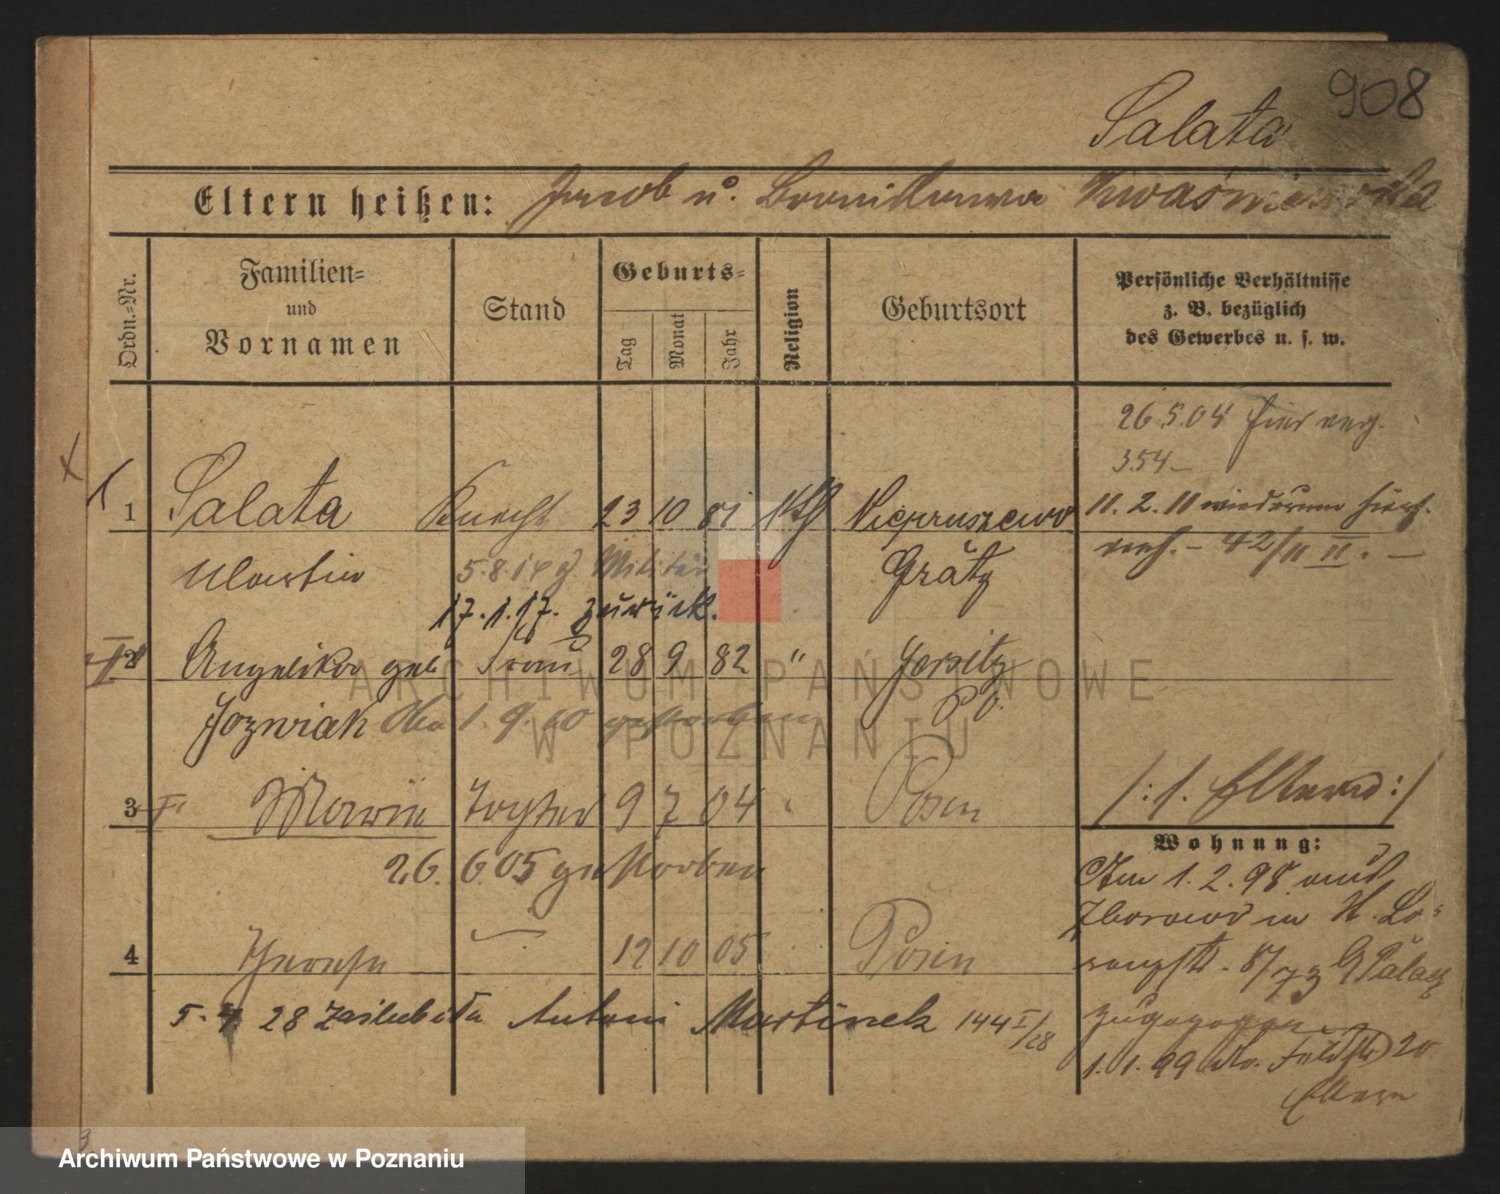 908
Salata
Eltern heißen: Jacob u. Bronislawa Kwaśniewska
Ordn.-Nr.
Familien-
und
Vornamen
Stand
Geburts-
Tag
Monat
Jahr
Religion
Geburtsort
Persönliche Verhältnisse
z. B. bezüglich
des Gewerbes u. s. w.
26.5.04 hier
354
1 Salata Knecht 23 10 81 kth Niepruszewo
11. 2. 11 wiederum
42/11 II.
Martin 5.8.14 z. Militär Grätz
17.1.17. zurück.
2 Angelika geb Frau 28 9 82 " Jersitz
Jozwiak 1. 9. gestorben Po.
3 Marie Tochter 9 7 04 Posen
26.6.05 gestorben
/: s. Eltern :/
Wohnung:
Am 1. 2. 98 aus
4 Therese 12 10 05 Posen
5. 4 28 zaślubiła Antoni Martinek 144 I/28
zugezogen
1. 1. 99 Feldstr 20
Eltern
ARCHIWUM PAŃSTWOWE
W POZNANIU
Archiwum Państwowe w Poznaniu